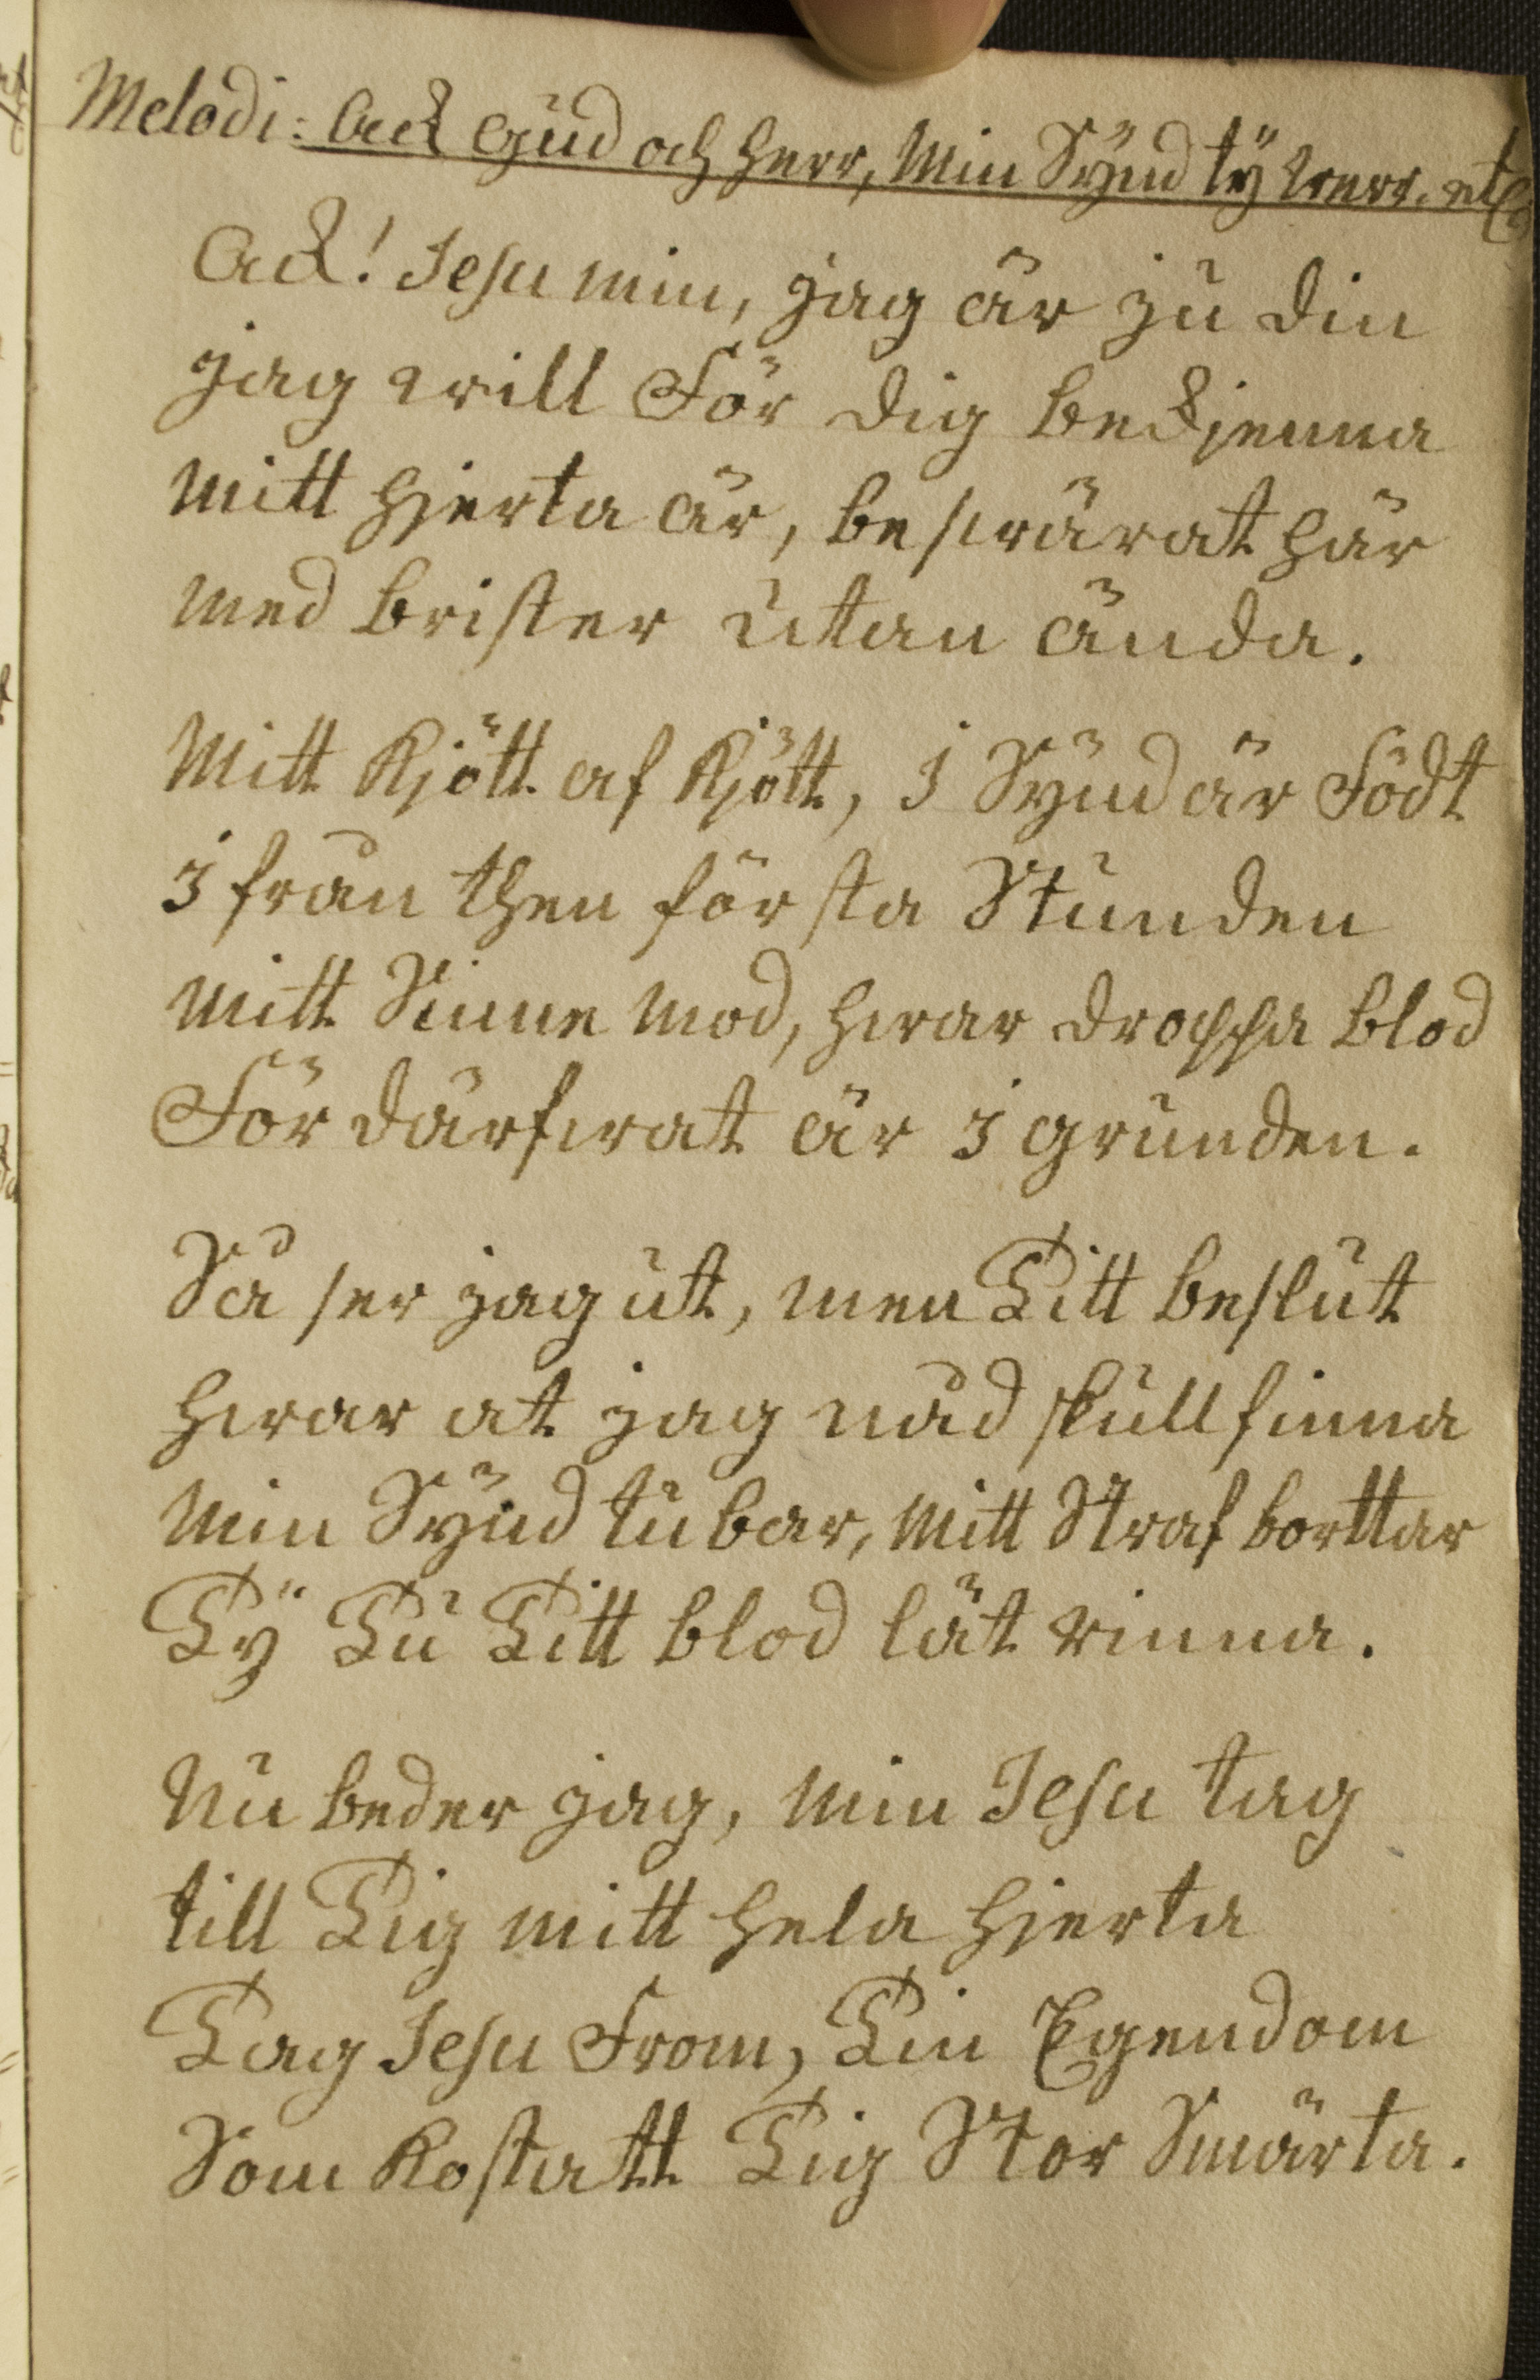 Melodi: Ack Gud och Herr, Min Synd ty werr. etc
Ack! Jesu min, jag är ju din
jag will För dig bekjenna
mitt hjerta är, beswärat här
med brister utan ända.
Mitt Kjött af Kjött, i Synd är Född
i från then första Stunden
mitt Sinne mod, hwar droppa blod
För därfwat är i grunden.
Så ser jag ut, men Titt beslut
hwar at jag nåd skull finna
min Synd tu bar, mitt Straf borttar
Ty Tu Titt blod lät rinna.
Nu beder jag, min Jesu tag
till Tig mitt hela hjerta
Tag Jesu From, Tin Egendom
Som Kostatt Tig Stor Smärta.